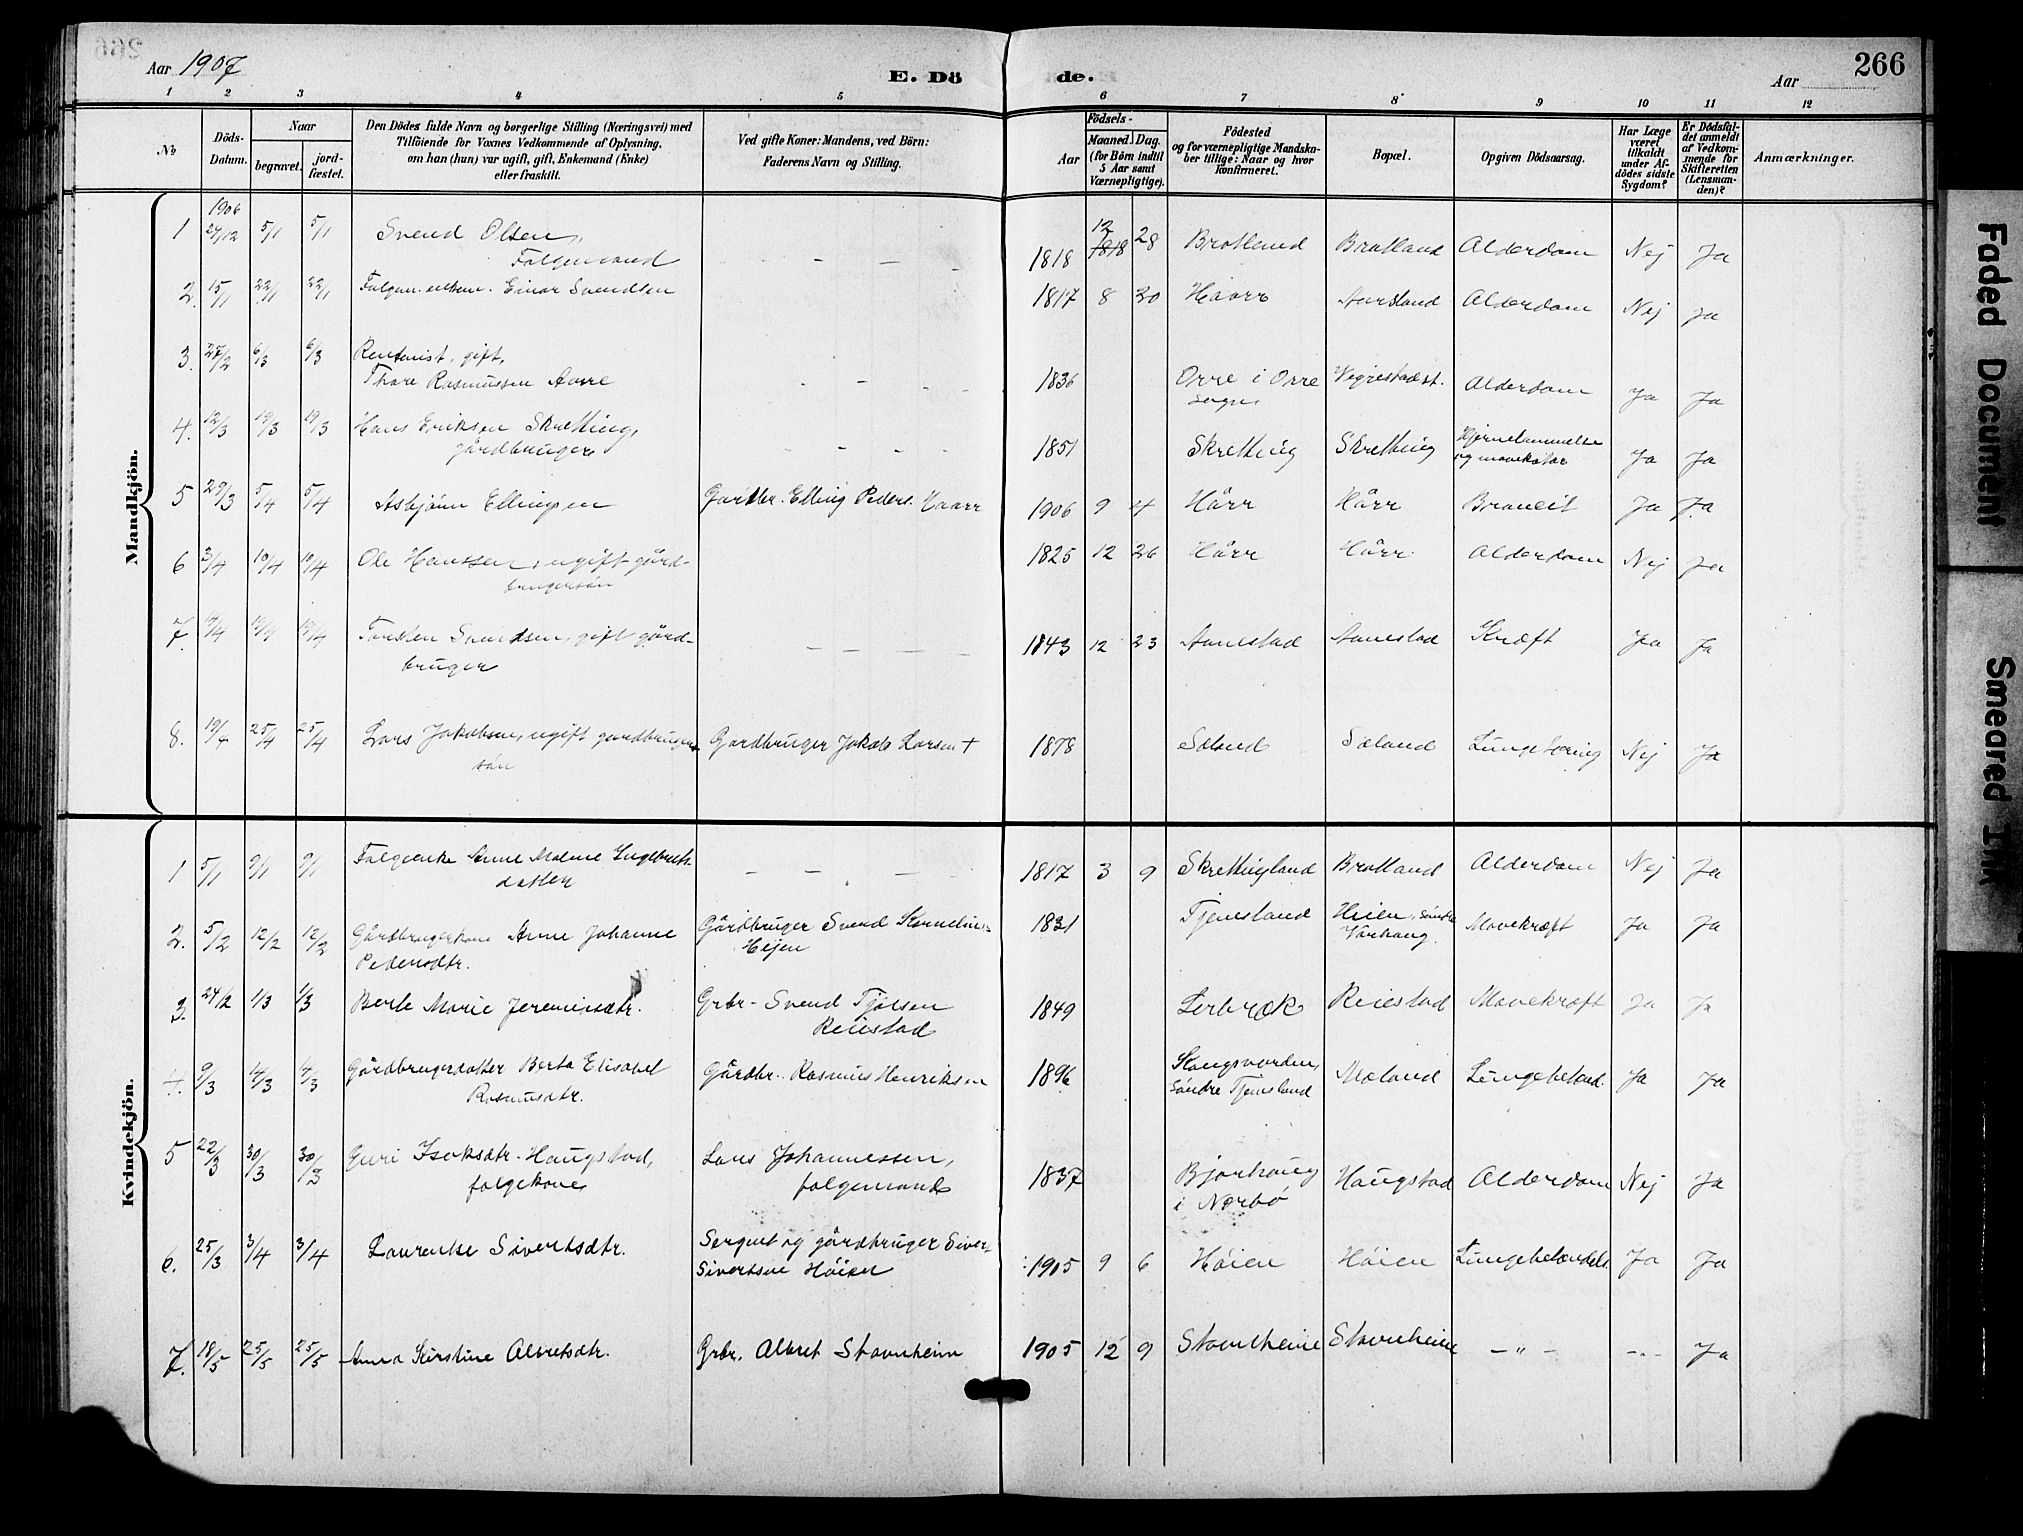 Aar 1907
E. Dö de.
Aar
266
1 2 3 4 5 6 7 8 9 10 11 12
No
Döds-Datum.
Naar
begravet.
jord-fæstet.
Den Dödes fulde Navn og borgerlige Stilling (Næringsvei) med
Tilföiende for Voxnes Vedkommende af Oplysning,
om han (hun) var ugift, gift, Enkemand (Enke)
eller fraskilt.
Ved gifte Koner: Mandens, ved Börn:
Faderens Navn og Stilling.
Födsels-
Aar
Maaned. Dag.
(for Börn indtil
5 Aar samt
Værnepligtige).
Födested
og for værnepligtige Mandska-
ber tillige: Naar og hvor
konfirmeret.
Bopæl.
Opgiven Dödsaarsag.
Har Læge
været
tilkaldt
under Af-
dödes sidste
Sygdom?
Er Dödsfal-
det anmeldt
af Vedkom-
mende for
Skifteretten
(Lensman-
den)?
Anmærkninger.
Mandkjön.
1906
1 27/12 5/1 5/1 Svend Olsen,
Folgemand - - - 1818 12 1818 28 Bratland Bratland Alderdom Nej Ja
2. 15/1 22/1 22/1 Einar Svendsen 1817 8 30 Haarr Aarsland Alderdom Nej Ja
3. 27/2 6/3 6/3 Rentenist, gift,
Thore Rasmussen Aarre - - - 1836 Orre i Orre Vigrestadst. Alderdom Ja Ja
sogn
4. 12/3 19/3 19/3 Hans Eriksen Skretting,
gårdbruger - - - 1851 Skretting Skretting Hjernelammelse
og mavekatar Ja Ja
5 29/3 5/4 5/4 Asbjörn Ellingsen Gardbr. Elling Peders. Haarr 1906 9 4 Hårr Hårr Bronkit Ja Ja
6 3/4 10/4 10/4 Ole Hanssen, ugift gård-
brugersön 1825 12 26 Hårr Hårr Alderdom Nej Ja
7. 19/4 19/4 Torsten Svendsen, gift gård-
bruger - - - - 1843 12 23 Aanestad Aanestad Kræft Ja Ja
8. 19/4 25/4 25/4 Lars Jakobsen, ugift gardbruger
sön Gardbruger Jakob Larsen + 1878 Söland Söland Lungetæring Nej Ja
Kvindekjön.
1 5/1 9/1 9/1 Folgeenke Anne Malene Ingebrets-
datter - - . - 1817 3 9 Skrettingland Bratland Alderdom Nej Ja
2. 5/2 12/2 12/2 Gårdbrugerkone Anne Johanne Gårdbruger Svend Kornelius.
Pedersdtr. Höjen 1831 Tjensland Höien, Söndre
Varhaug. Mavekræft Ja Ja
3. 24/2 1/3 1/3 Berte Marie Jeremiasdtr. Grbr. Svend Tjorsen
Reiestad 1849 Lerbræk Reiestad Mavekræft Ja Ja
4. 9/3 14/3 14/3 Gårdbrugerdatter Berta Elisabet
Rasmusdtr. Gårdbr. Rasmus Henriksen 1896
Söndre Tjensland Moland Lungebetænd. Ja Ja
5 22/3 30/3 30/3 Guri Isaksdtr. Haugstad,
folgekone Lars Johannessen,
folgemand 1837 Bjorhaug
i Nærbö Haugstad Alderdom Nej Ja
6. 25/3 3/4 3/4 Laurentse Sivertsdtr. Sergent og gårdbruger Sivert
Sivertsen Höien 1905 9 6 Höien Höien Lungebetændels. Ja Ja
7. 18/5 25/5 25/5 Anna Kirstine Albretsdtr. Grbr. Albret Stavnheim 1905 12 9 Stavnheim Stavnheim - " - - . - Ja
Faded Document
Smeared Ink